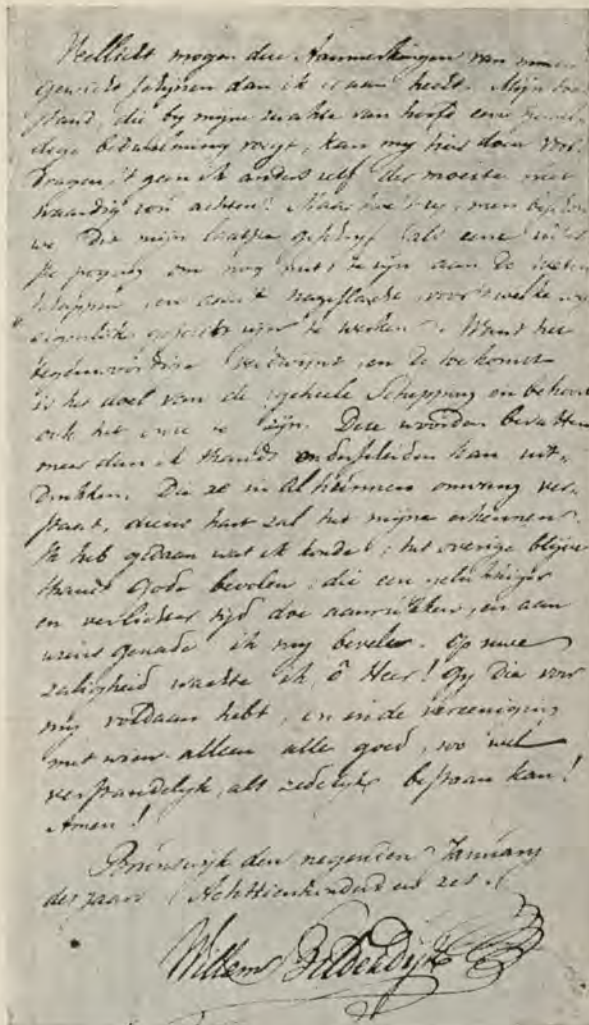 Wellicht mogen deze Aanmerkingen van minder
gewicht schijnen dan ik er aan hecht. Mijn toe-
stand, die by mijne zwakte van hoofd eene
bedwelming voegt, kan my hier doen voor-
dragen, 't geen ik anders zelf der moeite niet
waardig zou achten. Maar hoe 't zy, men beschou-
we die mijn laatste geschrijf als eene
poging om nog nut te zijn aan de weten-
schappen, en aan 't nageslacht, voor 't welke wy
eigenlijk geschikt zijn te werken. Want het
tegenwoordige verdwijnt, en de toekomst
is het doel van de geheele Schepping en behoort
ook het onze te zijn. Deze woorden bevatten
meer dan ik thands onderscheiden kan uit-
drukken. Die ze in al heuren omvang ver-
staat, diens hart zal het mijne erkennen.
Ik heb gedaan wat ik konde; het overige blijve
thands Gode bevolen, die een gelukkiger
en verlichter tijd doe aanrukken, en aan
wiens genade ik my bevele. Op uwe
zaligheid wachte ik, ô Heer! Gy die voor
my voldaan hebt, en in de vereeniging
met wien alleen alle goed, zoo wel
verstandelyk, als zedelyk bestaan kan!
Amen!
Brunswijk den negenden January
des jaars Achttienhonderd en zes.
Willem Bilderdijk